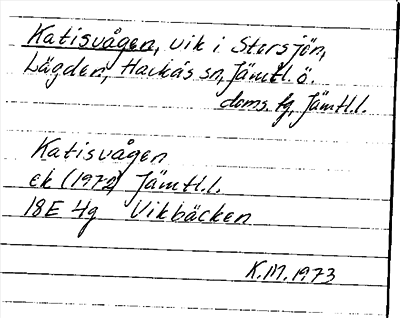 Katisvågen, vik i Storsjön,
Lägden, Hackås sn, Jämtl. ö.
doms. lg, Jämtl.l.
Katisvågen
ek (1972) Jämtl.l.
18E 4g Vikbäcken
K.M. 1973